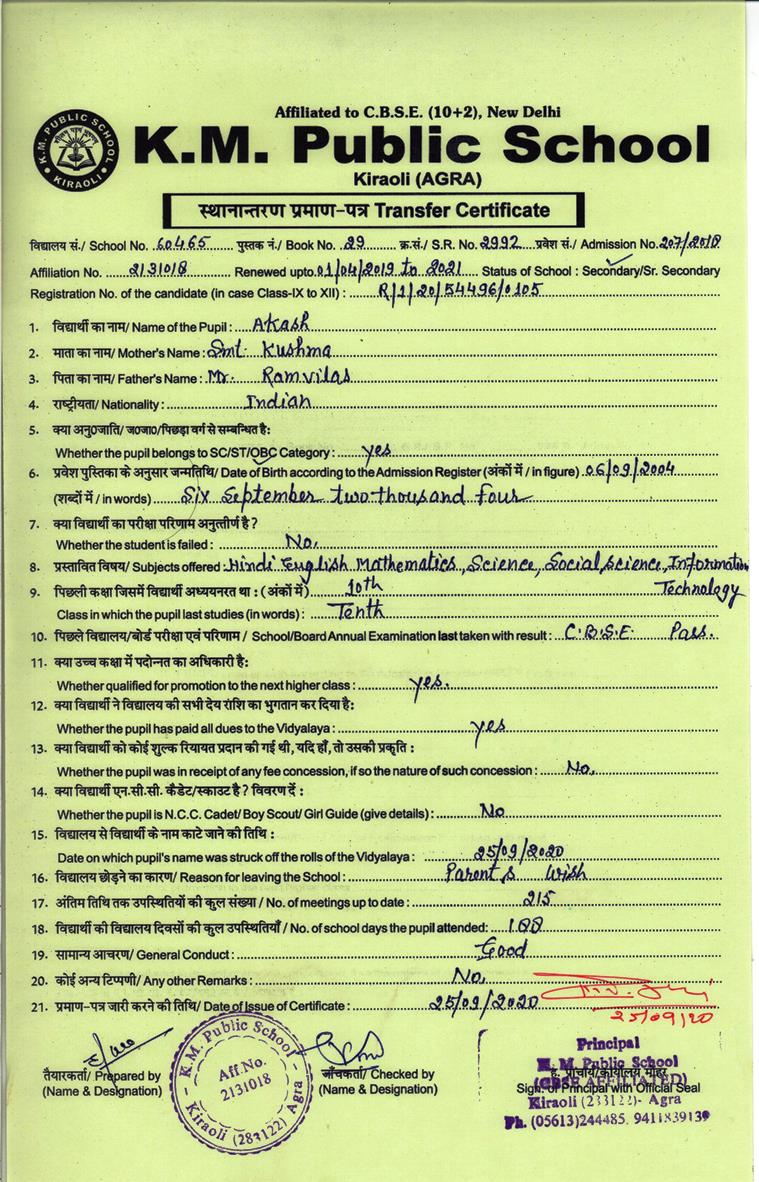 Affiliated to C.B.S.E. (10+2), New Delhi
K.M. PUBLIC SCHOOL KIRAOLI
K.M. Public School
Kiraoli (AGRA)
स्थानान्तरण प्रमाण-पत्र Transfer Certificate
विद्यालय सं./ School No. 60465 पुस्तक नं./ Book No. 29 क्र.सं./ S.R. No. 2992 प्रवेश सं./ Admission No. 207/2018
Affiliation No. 2131018 Renewed upto 01/04/2019 to 2021 Status of School : Secondary/Sr. Secondary
Registration No. of the candidate (in case Class-IX to XII) : R/1/20/54496/0105
1. विद्यार्थी का नाम/ Name of the Pupil : Akash
2. माता का नाम/ Mother's Name : Smt. Kushma
3. पिता का नाम/ Father's Name : Mr. Ramvilas
4. राष्ट्रीयता/ Nationality : Indian
5. क्या अनु0जाति/ ज0जा0/पिछड़ा वर्ग से सम्बन्धित है:
Whether the pupil belongs to SC/ST/OBC Category : yes
6. प्रवेश पुस्तिका के अनुसार जन्मतिथि/ Date of Birth according to the Admission Register (अंकों में / in figure) 06/09/2004
(शब्दों में / in words) Six September two thousand four
7. क्या विद्यार्थी का परीक्षा परिणाम अनुत्तीर्ण है ?
Whether the student is failed : No.
8. प्रस्तावित विषय/ Subjects offered : Hindi English Mathematics, Science, Social, science, Information
Technology
9. पिछली कक्षा जिसमें विद्यार्थी अध्ययनरत था : (अंकों में) 10th
Class in which the pupil last studies (in words) : Tenth
10. पिछले विद्यालय/बोर्ड परीक्षा एवं परिणाम / School/Board Annual Examination last taken with result : C.B.S.E. Pass.
11. क्या उच्च कक्षा में पदोन्नत का अधिकारी है:
Whether qualified for promotion to the next higher class : yes.
12. क्या विद्यार्थी ने विद्यालय की सभी देय राशि का भुगतान कर दिया है:
Whether the pupil has paid all dues to the Vidyalaya : yes
13. क्या विद्यार्थी को कोई शुल्क रियायत प्रदान की गई थी, यदि हाँ, तो उसकी प्रकृति :
Whether the pupil was in receipt of any fee concession, if so the nature of such concession : No.
14. क्या विद्यार्थी एन.सी.सी. कैडेट/स्काउट है ? विवरण दें :
Whether the pupil is N.C.C. Cadet/ Boy Scout/ Girl Guide (give details) : No
15. विद्यालय से विद्यार्थी के नाम काटे जाने की तिथि :
Date on which pupil's name was struck off the rolls of the Vidyalaya : 25/09/2020
16. विद्यालय छोड़ने का कारण/ Reason for leaving the School : Parent,s Wish
17. अंतिम तिथि तक उपस्थितियों की कुल संख्या / No. of meetings up to date : 215
18. विद्यार्थी की विद्यालय दिवसों की कुल उपस्थितियाँ / No. of school days the pupil attended:
19. सामान्य आचरण/ General Conduct : Good
20. कोई अन्य टिप्पणी/ Any other Remarks : No.
21. प्रमाण-पत्र जारी करने की तिथि/ Date of Issue of Certificate : 25/09/2020
25/09/20
तैयारकर्ता/ Prepared by
(Name & Designation)
K.M. Public School
Aff.No.
2131018
Kiraoli (283122) Agra
जाँचकर्ता/ Checked by
(Name & Designation)
Principal
K. M. Public School
ह. प्राचार्य/कार्यालय मोहर
(CBSE AFFILIATED)
Sign. of Principal with Official Seal
Kiraoli (283122)- Agra
Ph. (05613)244485, 9411839139